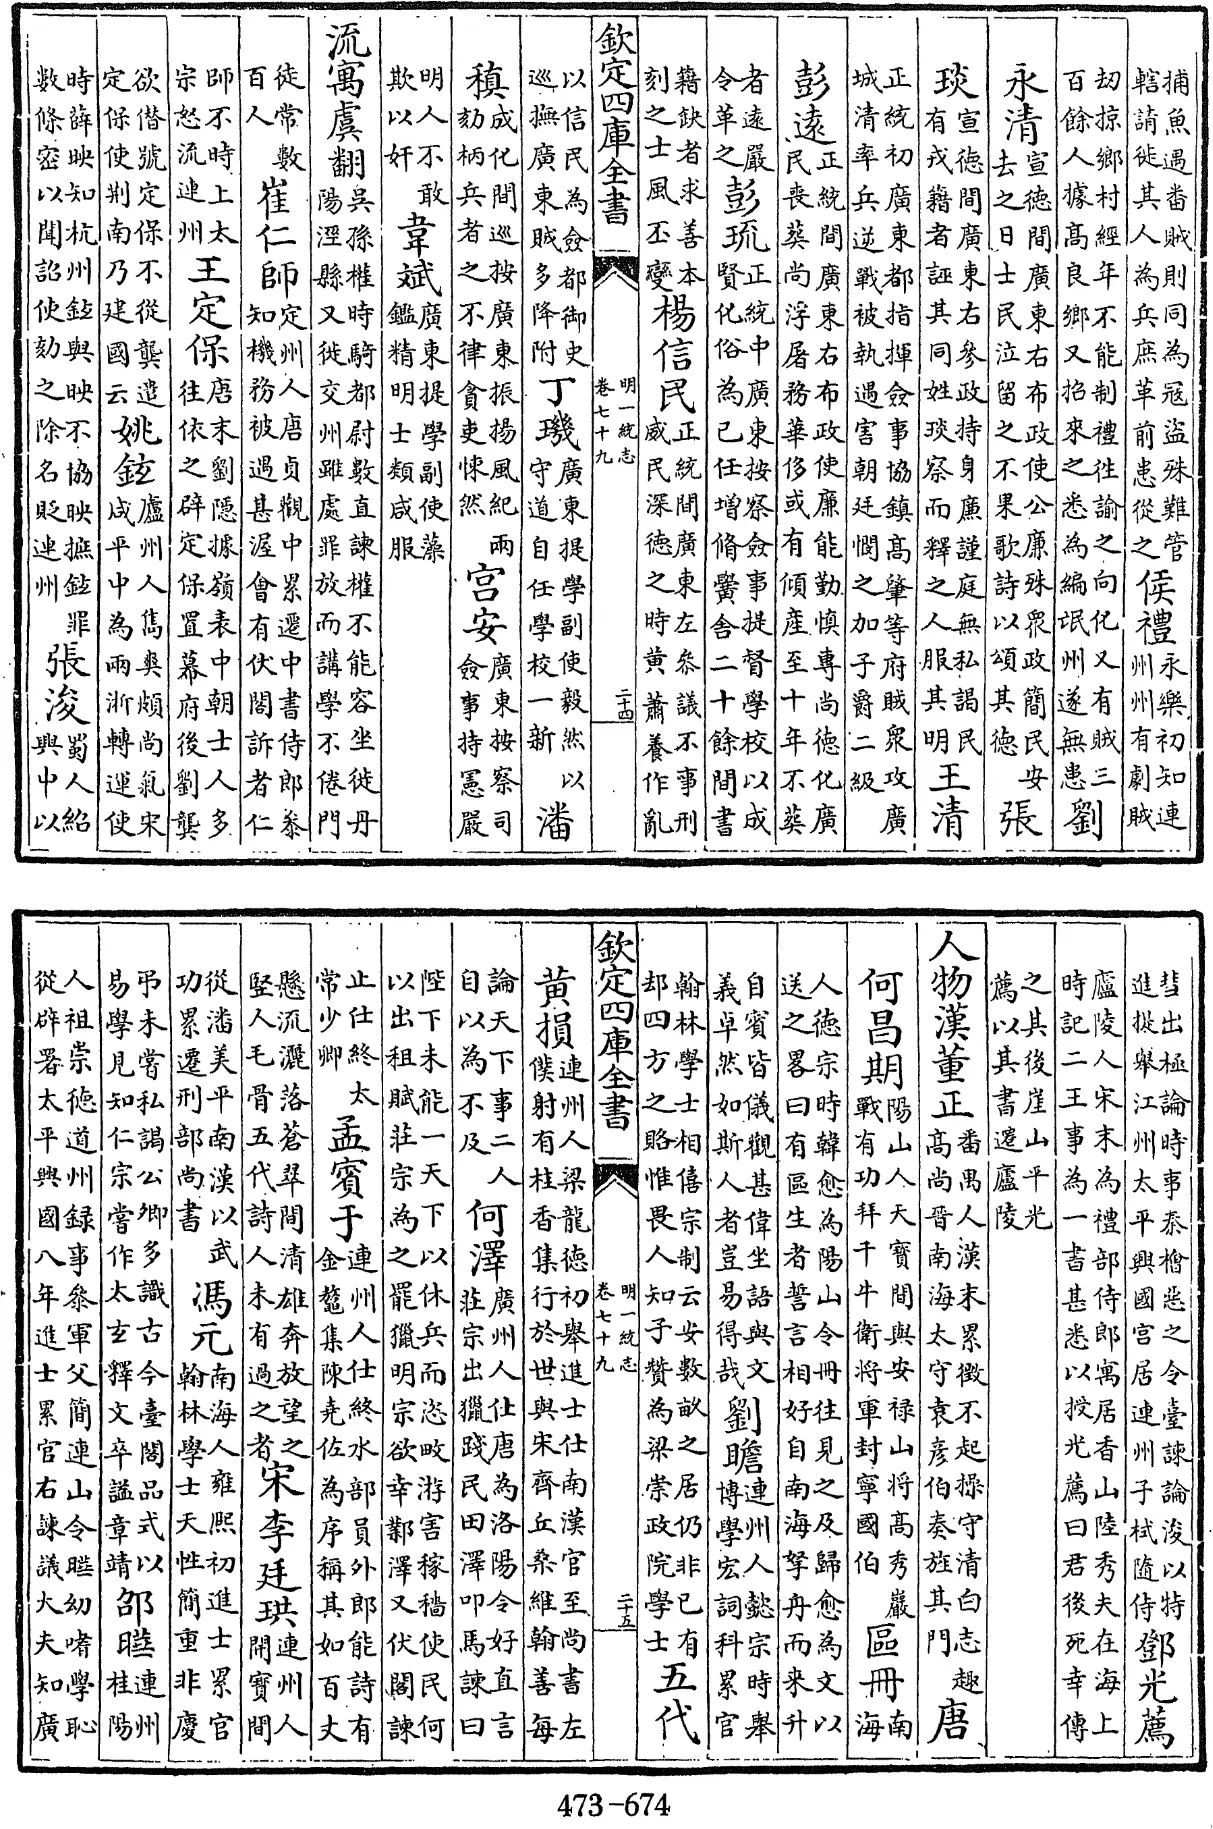 捕魚遇番賊則同為冦盜殊難管
轄請徙其人為兵庶革前患從之
侯禮
永樂初知連
州州有劇賊
刼掠鄉村經年不能制禮徃諭之向化又有賊三
百餘人據髙良鄉又招來之悉為編氓州遂無患
劉
永清
宣德間廣東右布政使公廉殊衆政簡民安
去之日士民泣留之不果歌詩以頌其德
張
琰
宣德間廣東右參政持身廉謹庭無私謁民
有戎籍者誣其同姓琰察而釋之人服其明
王清
正統初廣東都指揮僉事協鎮髙肇等府賊衆攻廣
城清率兵逆戰被執遇害朝廷憫之加子爵二級
彭逺
正統間廣東右布政使廉能勤慎專尚德化廣
民喪葬尚浮屠務華侈或有傾産至十年不葬
者逺嚴
令革之
彭琉
正統中廣東按察僉事提督學校以成
賢化俗為己任增脩黌舍二十餘間書
籍缺者求善本
刻之士風丕變
楊信民
正統間廣東左叅議不事刑
威民深德之時黄蕭養作亂
欽定四庫全書
明一統志
卷七十九
二十四
以信民為僉都御史
廵撫廣東賊多降附
丁璣
廣東提學副使毅然以
守道自任學校一新
潘
稹
成化間廵按廣東振揚風紀兩
劾柄兵者之不律貪吏悚然
宫安
廣東按察司
僉事持憲嚴
明人不敢
欺以奸
韋斌
廣東提學副使藻
鑑精明士類咸服
流寓虞翻
吳孫權時騎都尉數直諫權不能容坐徙丹
陽涇縣又徙交州雖處罪放而講學不倦門
徒常數
百人
崔仁師
定州人唐貞觀中累遷中書侍郎叅
知機務被遇甚渥會有伏閤訴者仁
師不時上太
宗怒流連州
王定保
唐末劉隱據嶺表中朝士人多
往依之辟定保置幕府後劉龑
欲僣號定保不從龑遣
定保使荆南乃建國云
姚鉉
盧州人雋爽頗尚氣宋
咸平中為兩浙轉運使
時薛映知杭州鉉與映不協映摭鉉罪
數條宻以聞詔使劾之除名貶連州
張浚
蜀人紹
興中以
彗出極論時事秦檜惡之令臺諫論浚以特
進提舉江州太平興國宫居連州子栻隨侍
鄧光薦
廬陵人宋末為禮部侍郎寓居香山陸秀夫在海上
時記二王事為一書甚悉以授光薦曰君後死幸傳
之其後崖山平光
薦以其書還廬陵
人物漢董正
番禺人漢末累徵不起操守清白志趣
高尚晉南海太守袁彦伯奏旌其門
唐
何昌期
陽山人天寳間與安禄山將髙秀巖
戰有功拜千牛衛將軍封寧國伯
區冊
南
海
人德宗時韓愈為陽山令冊往見之及歸愈為文以
送之畧曰有區生者誓言相好自南海拏舟而来升
自賓皆儀觀甚偉坐語與文
義卓然如斯人者豈易得哉
劉瞻
連州人懿宗時舉
博學宏詞科累官
翰林學士相僖宗制云安數畝之居仍非已有
却四方之賂惟畏人知子贊為梁崇政院學士
五代
欽定四庫全書
明一統志
卷七十九
二十五
黄損
連州人梁龍德初舉進士仕南漢官至尚書左
僕射有桂香集行於世與宋齊丘桑維翰善每
論天下事二人
自以為不及
何澤
廣州人仕唐為洛陽令好直言
莊宗出獵踐民田澤叩馬諫曰
陛下未能一天下以休兵而恣畋游害稼穡使民何
以出租賦莊宗為之罷獵明宗欲幸鄴澤又伏閤諫
止仕終太
常少卿
孟賓于
連州人仕終水部員外郎能詩有
金鼇集陳堯佐為序稱其如百丈
懸流灑落蒼翠間清雄奔放望之
竪人毛骨五代詩人未有過之者
宋李廷珙
連州人
開寳間
從潘美平南漢以武
功累遷刑部尚書
馮元
南海人雍熙初進士累官
翰林學士天性簡重非慶
弔未嘗私謁公卿多識古今臺閣品式以
易學見知仁宗嘗作太玄釋文卒諡章靖
邵曄
連州
桂陽
人祖崇德道州録事叅軍父簡連山令曄幼嗜學恥
從辟署太平興國八年進士累官右諫議大夫知廣
473-674